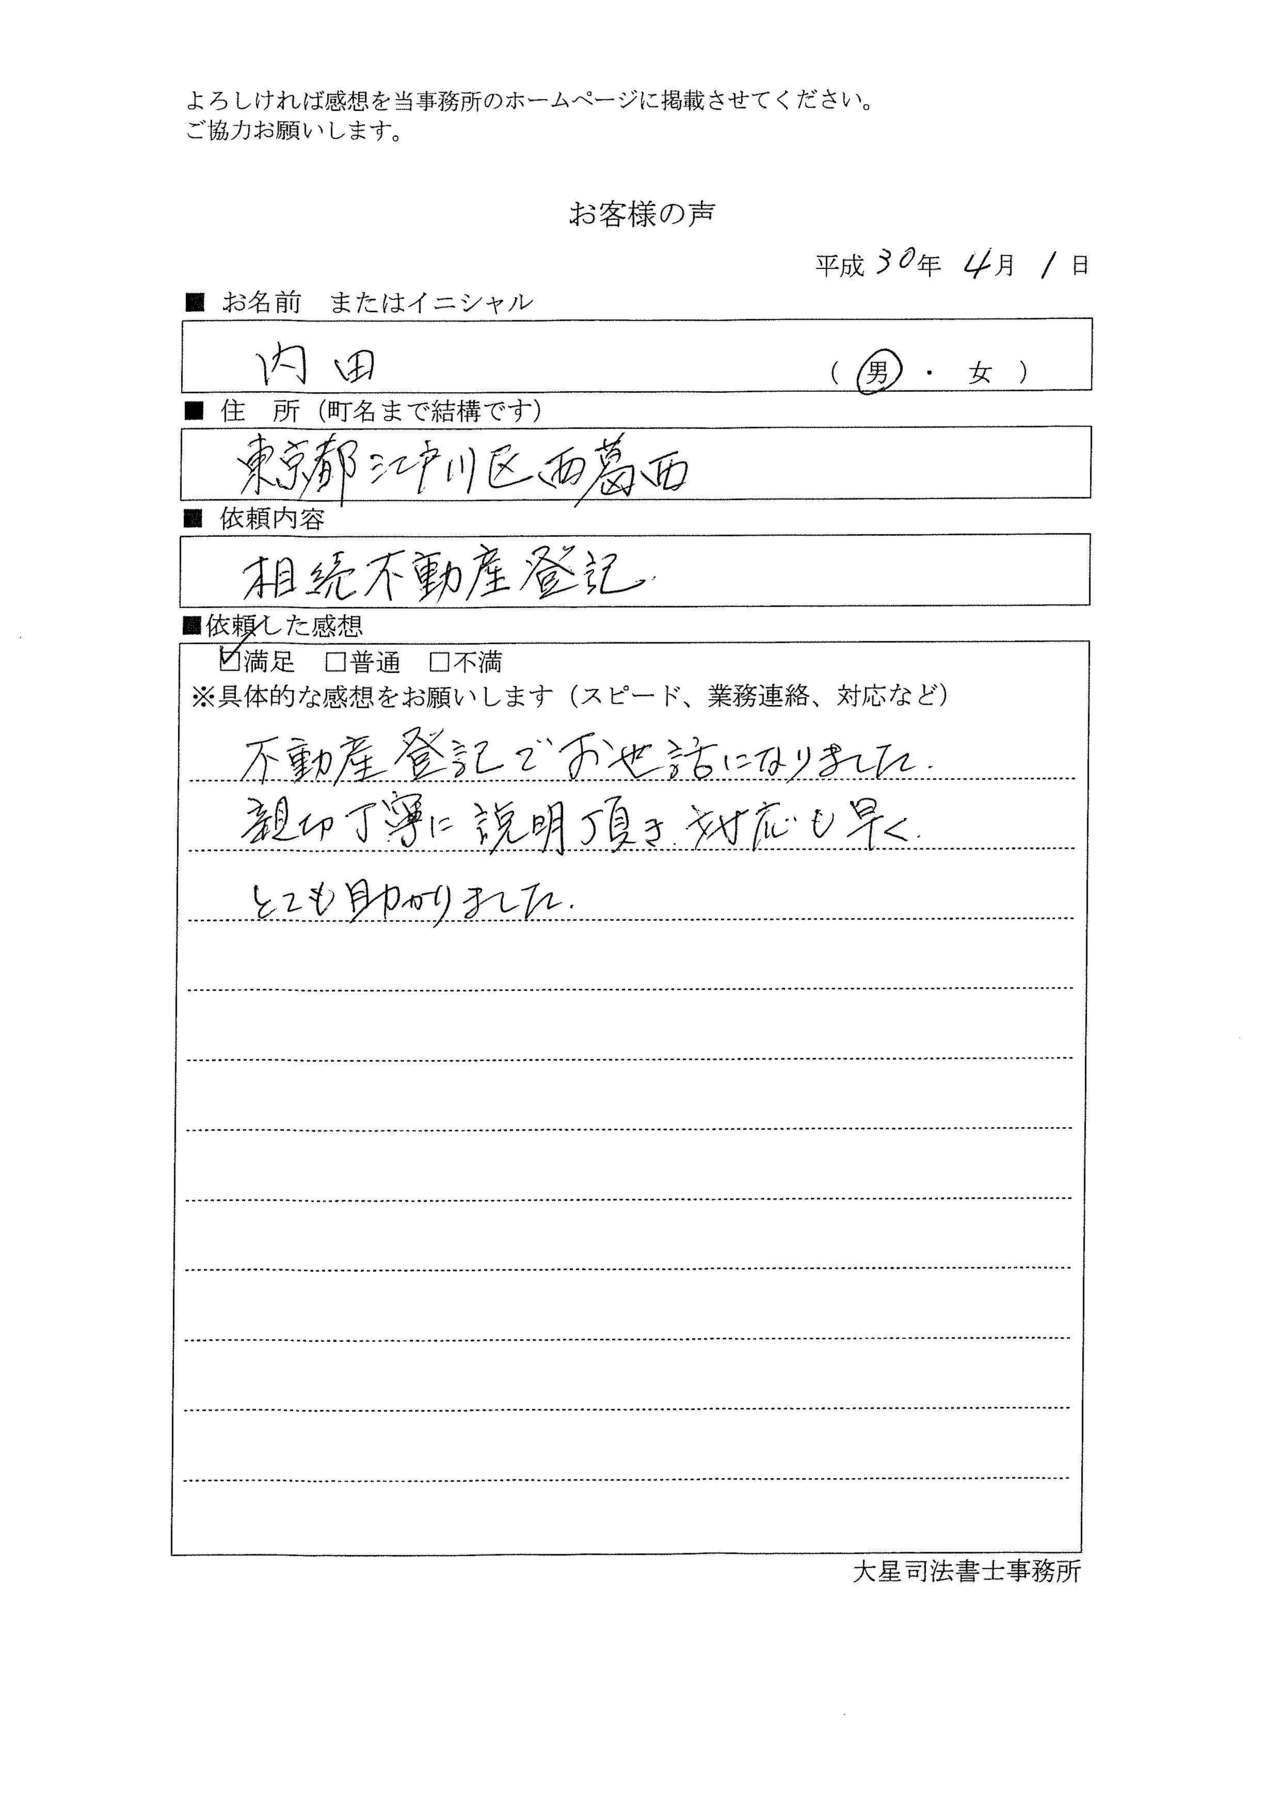 よろしければ感想を当事務所のホームページに掲載させてください。
ご協力お願いします。
お客様の声
平成 30年 4月 1日
■ お名前 またはイニシャル
内田 （ 男 ・ 女 ）
■ 住 所（町名まで結構です）
東京都江戸川区西葛西
■ 依頼内容
相続不動産登記.
■依頼した感想
☑満足 □普通 □不満
※具体的な感想をお願いします（スピード、業務連絡、対応など）
不動産登記でお世話になりました.
親切丁寧に説明頂き.対応も早く.
とても助かりました.
大星司法書士事務所